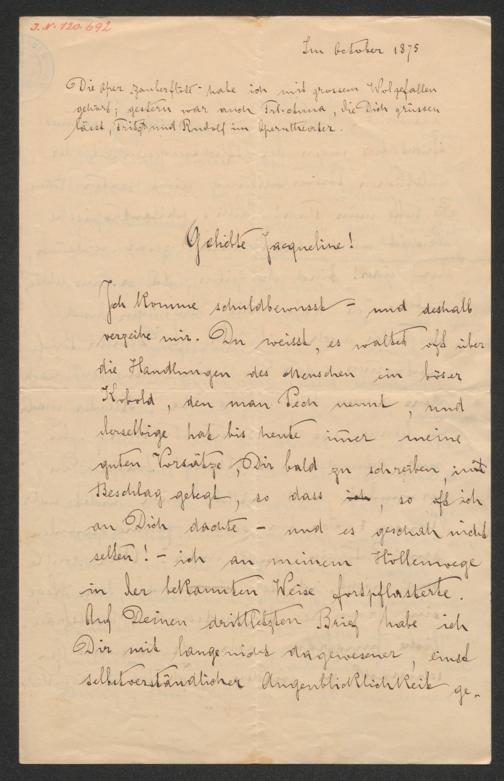 I.N. 120.692
Im October 1875
Die Oper "Zauberflöte" habe ich mit grossem Wolgefallen
gehört; gestern war auch , die Dich grüssen
lässt, Fritz und Rudolf im Operntheater.
Geliebte Jacqueline!
Ich komme schuldbewusst – und deshalb
verzeihe mir. Du weisst, es waltet oft über
die Handlungen des Menschen ein böser
Kobold, den man Pech nennt, und
derselbige hat bis heute im̅er meine
guten Vorsätze, Dir bald zu schreiben, mit
Beschlag gelegt, so dass ich, so oft ich
an Dich dachte – und es geschah nicht
selten! – ich an meinem Höllenwege
in der bekannten Weise fortpflasterte.
Auf Deinen drittletzten Brief habe ich
Dir mit lange nicht dagewesener, einst
selbstverständlicher Augenblicklichkeit ge-